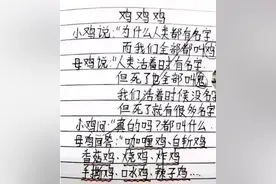 鸡鸡鸡
小鸡说:“为什么人类都有名字
而我们全部都叫鸡
母鸡说:“人类活着时有名字
但死了也全部叫鬼
我们活着时候没名字
但死了就有很多名字
小鸡问:“真的吗?都叫什么
母鸡回答:“咖喱鸡、白斩鸡
香菇鸡、烧鸡、炸鸡
手撕鸡、口水鸡、辣子鸡……